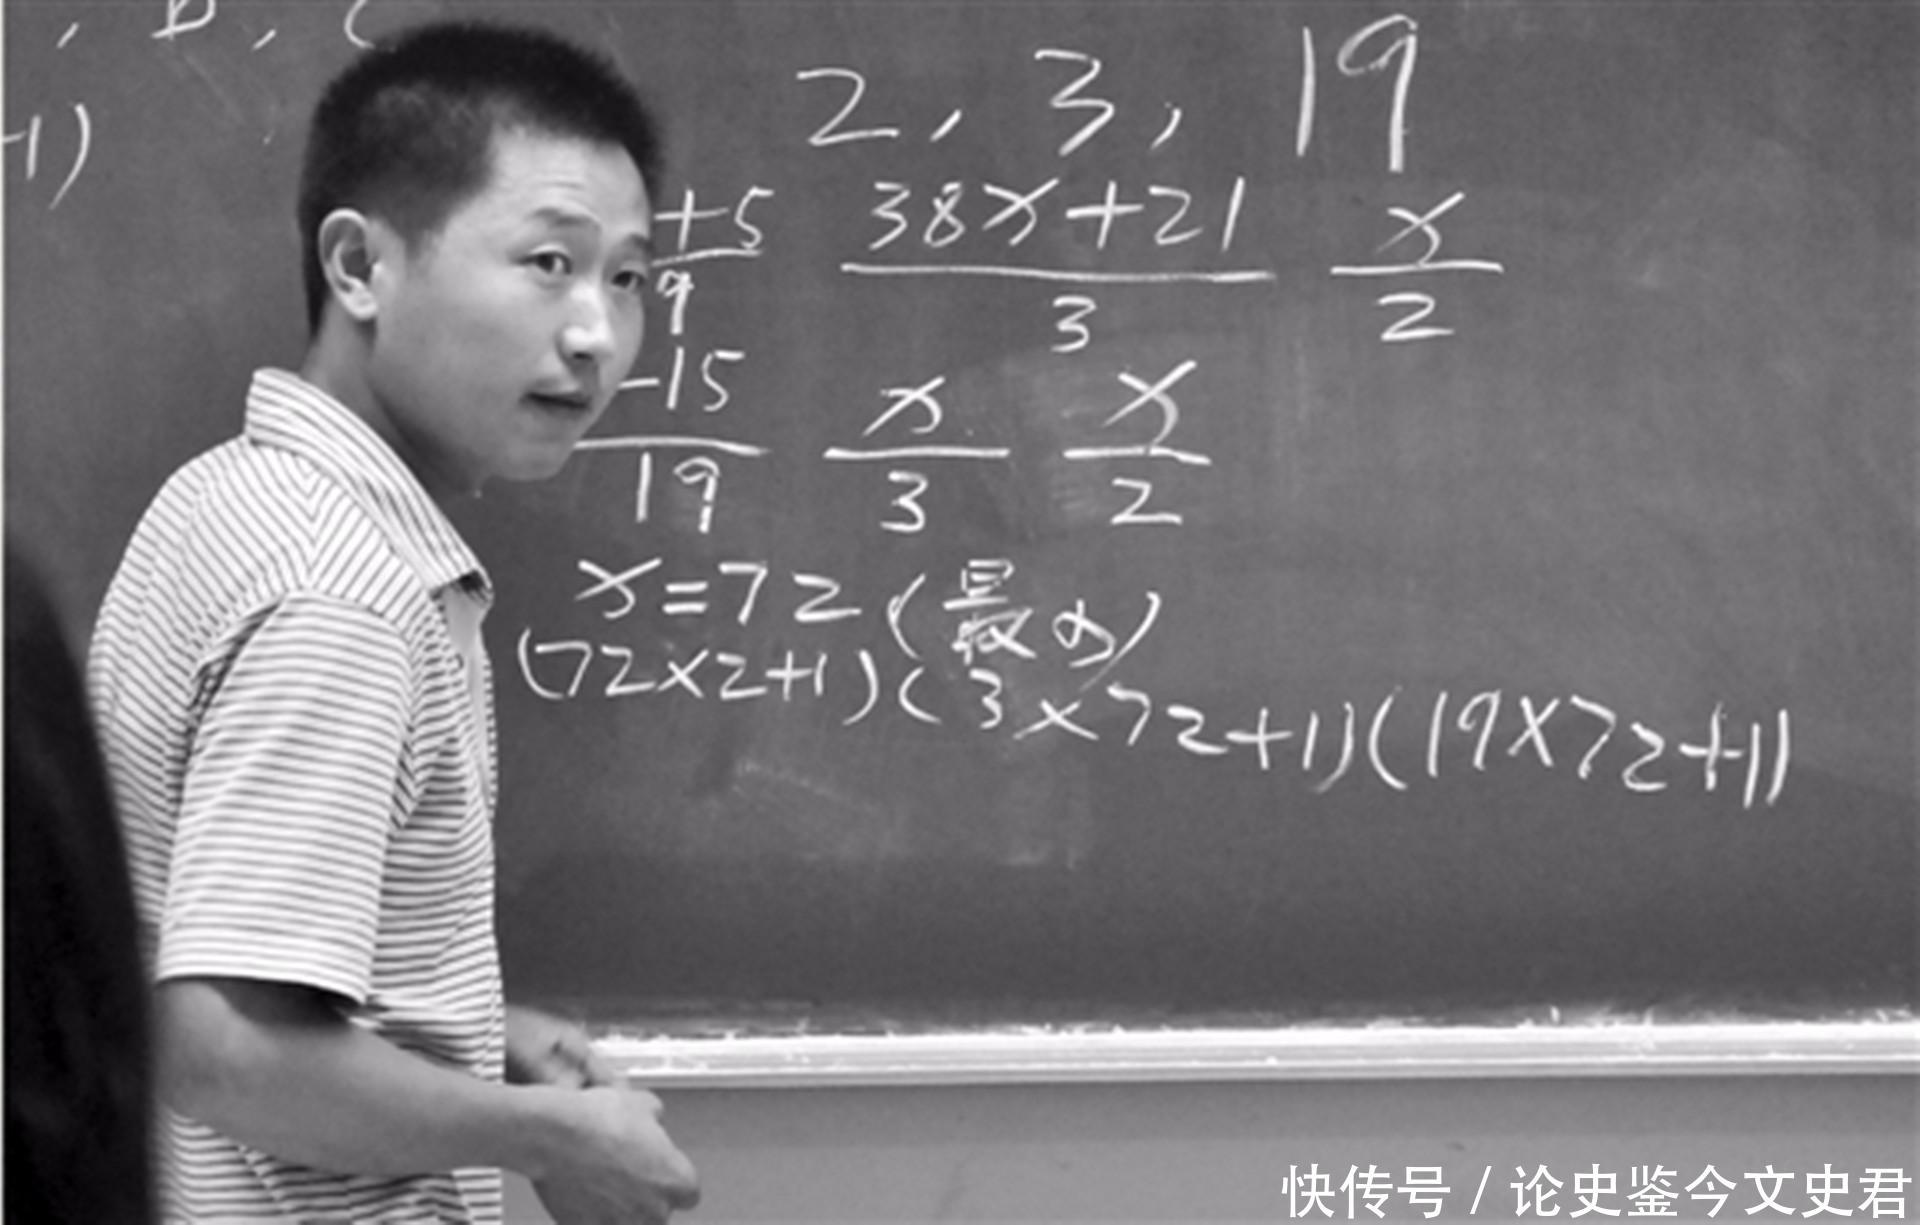 , B, C
-1)
2, 3, 19
+5/9 (38x+21)/3 x/2
-15/19 x/3 x/2
x=72(最小)
(72×2+1)(3×72+1)(19×72+1)
快传号 / 论史鉴今文史君